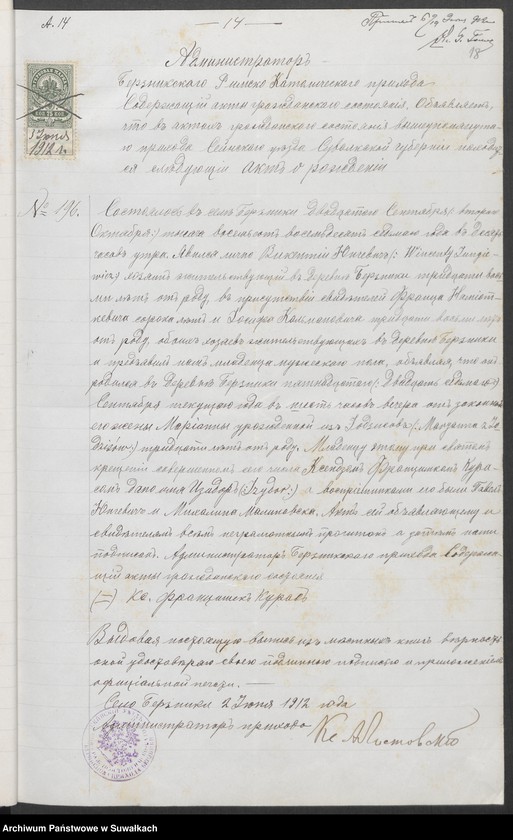 А. 14
— 14 —
18
Администраторъ
Берзникскаго Римско Католическаго прихода
Содержащій акты гражданскаго состоянія, Объявляетъ,
что въ актахъ гражданскаго состоянія
прихода Сейнскаго уѣзда Сувалкской губерніи
слѣдующій актъ о рожденіи
1 Іюня
1912 г.
№ 196.
Состоялось въ селѣ Берзники Двадцатого Сентября /: второго
Октября :/ тысяча восемьсотъ восемьдесятъ седьмого года въ Десять
часовъ утра. Явился лично Викентій Юнгевичъ /: Wincenty Jungie-
wicz :/ жительствующій въ деревнѣ Берзники тридцати
лѣтъ отъ роду, въ присутствіи свидѣтелей Франца
сорока лѣтъ и Іосифа Кальмановича тридцати лѣтъ
отъ роду, обоихъ жительствующихъ въ деревнѣ Берзники
и предъявилъ намъ младенца мужескаго пола, объявляя, что онъ
родился въ деревнѣ Берзники пятнадцатого /: двадцать седьмого :/
Сентября текущаго года въ шесть часовъ вечера отъ законной
его жены Маріанны урожденной
тридцати лѣтъ отъ роду. Младенцу этому при святомъ
крещеніи совершенномъ сего числа Ксендзомъ Францишкомъ Кура-
сомъ дано имя Изидоръ /: Izydor :/ а воспріемниками его были
Юнгевичъ и Михалина Малиновска. Актъ сей объявляющему и
свидѣтелямъ всѣмъ неграмотнымъ прочитанъ а затѣмъ нами
подписанъ. Администраторъ Берзникскаго прихода Содержа-
щій акты гражданскаго состоянія
(—) Кс. Францишекъ Курасъ
Выдавая настоящую выпись изъ книгъ
удостовѣряю своею подписью и приложеніемъ
официальной печати. —
Село Берзники 2 Іюня 1912 года
Администраторъ прихода
Кс
Archiwum Państwowe w Suwałkach